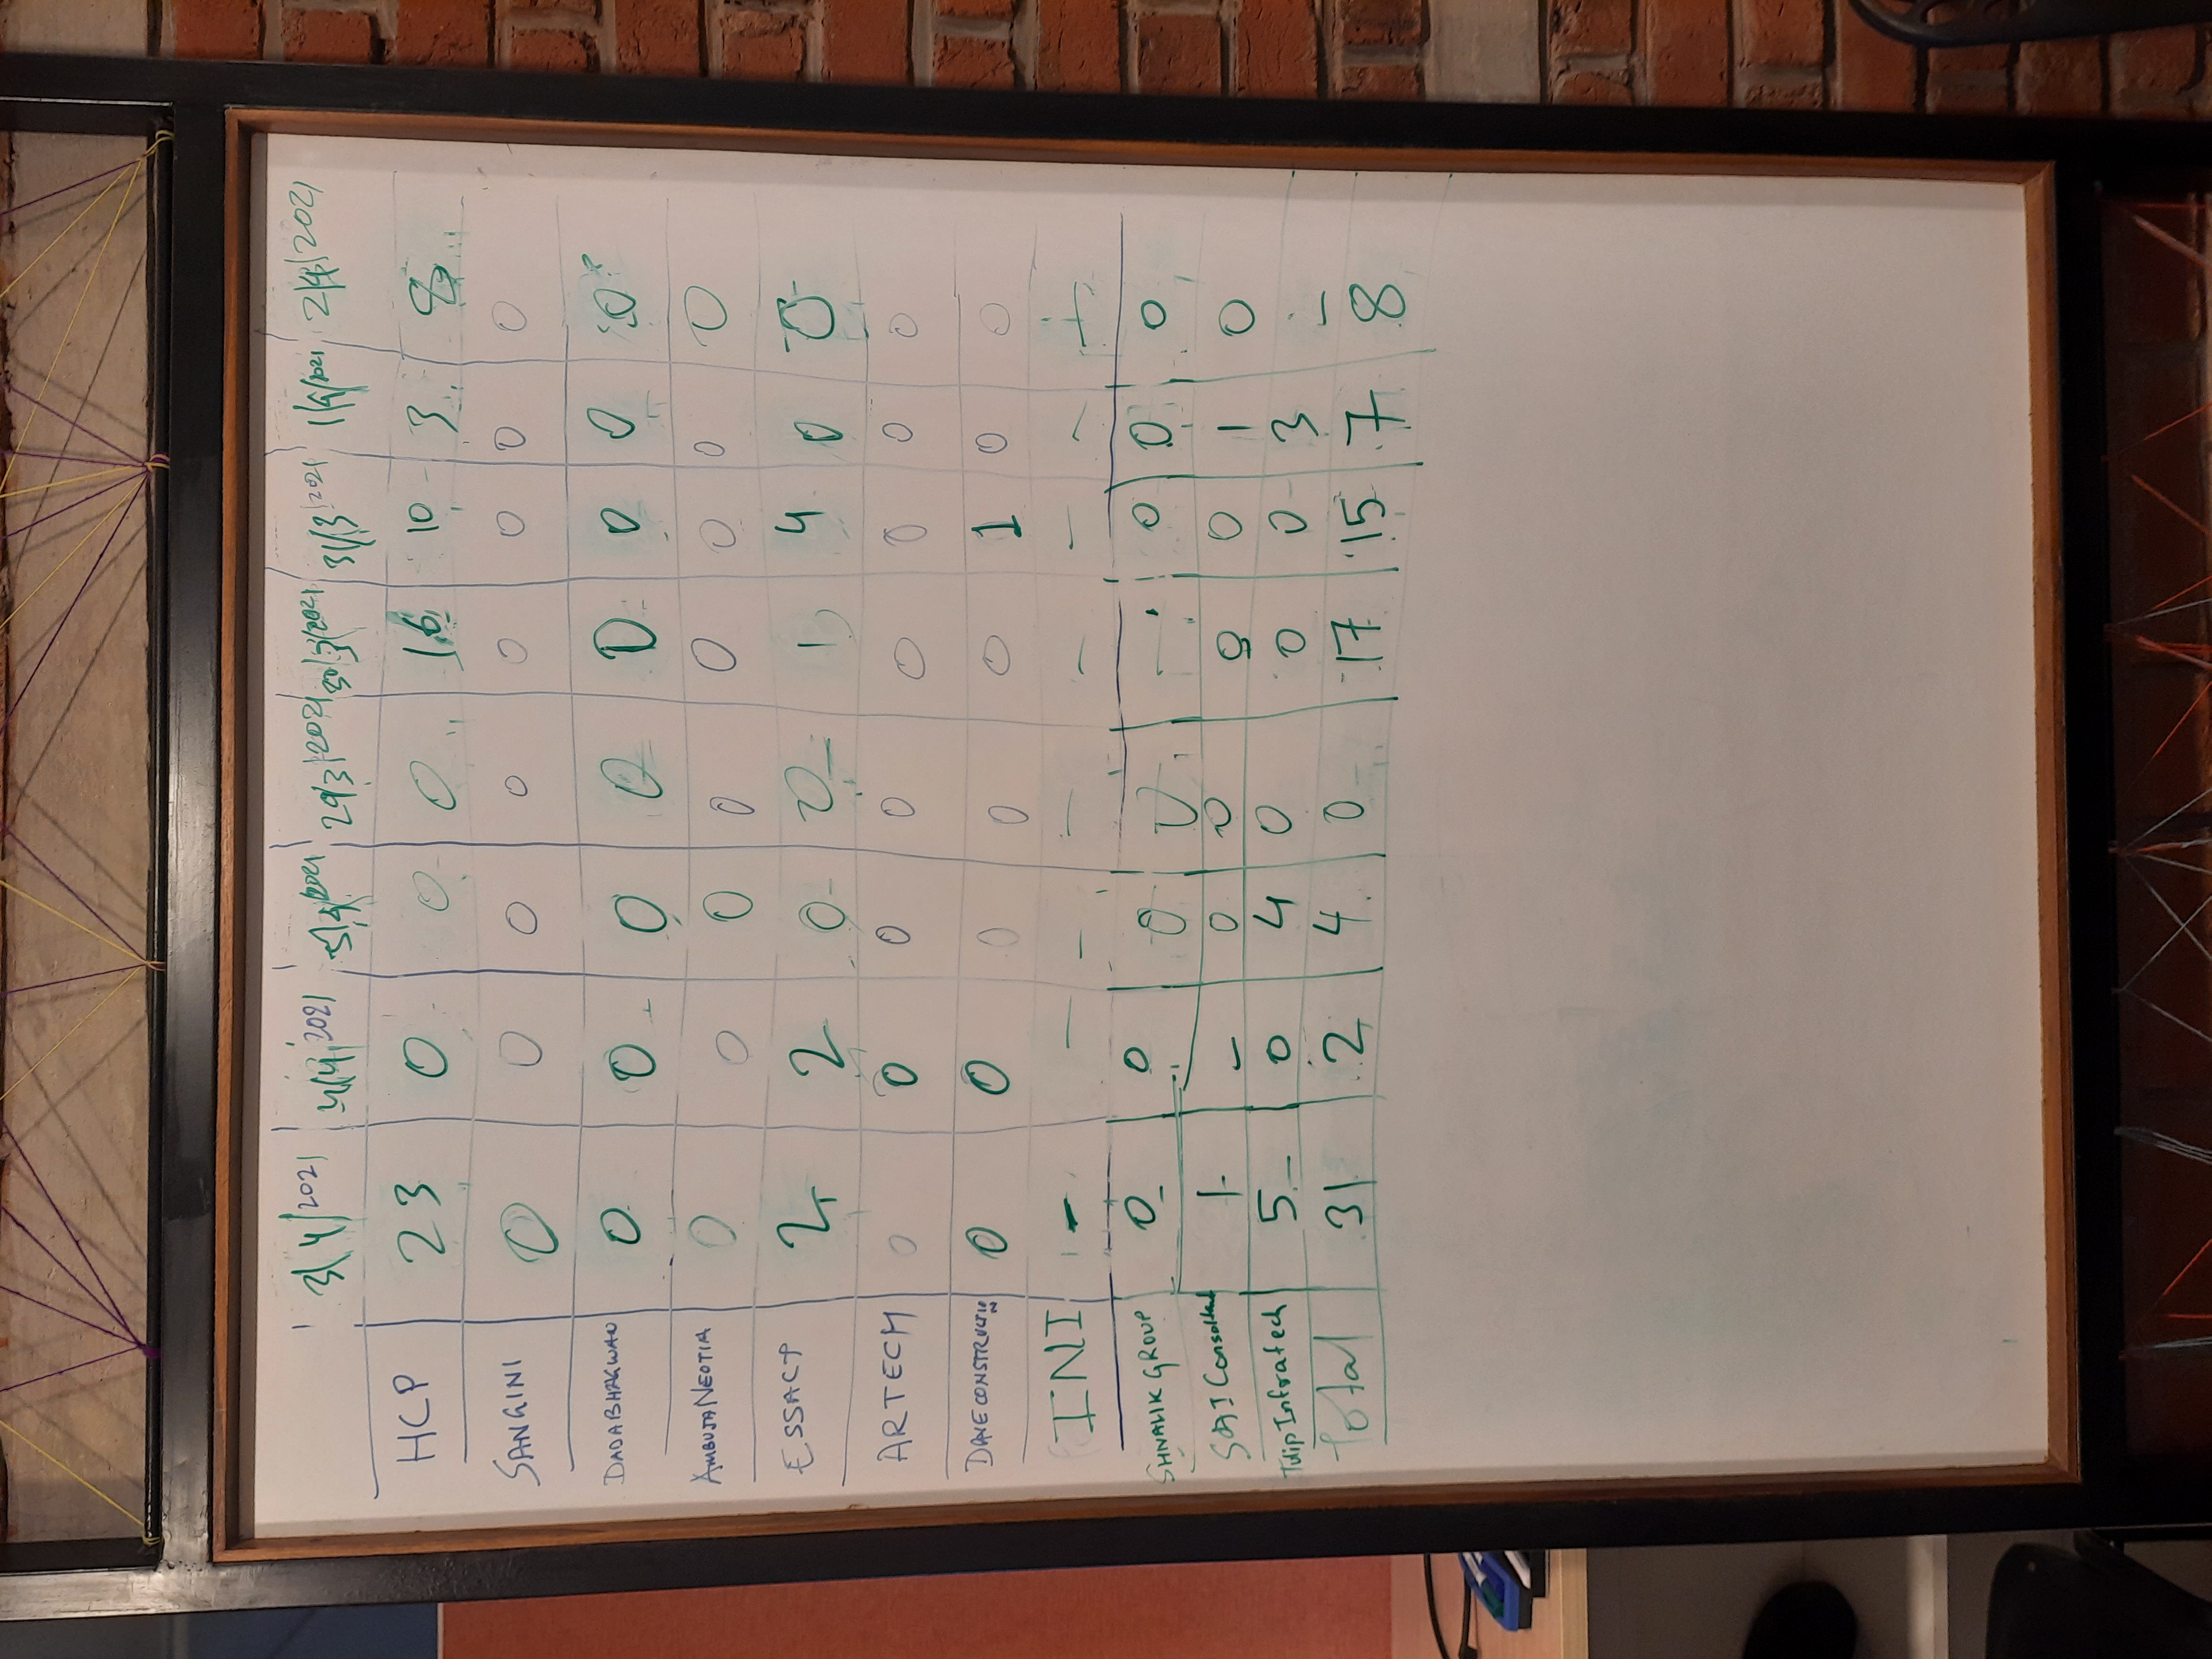 3/4/2021 4/4/2021 5/4/2021 29/3/2021 30/3/2021 31/3/2021 1/4/2021 2/4/2021
HCP 23 0 0 0 16 10 3 8
SANGINI 0 0 0 0 0 0 0 0
DADABHAGWAN 0 0 0 0 0 0 0 0
AMBUJA NEOTIA 0 0 0 0 0 0 0 0
ESSACP 2 2 0 0 1 4 0 0
ARTECH 0 0 0 0 0 0 0 0
DAVE CONSTRUCTION 0 0 0 0 0 1 0 0
INI - - - - - - - -
SHNALIK GROUP 0 0 0 0 - 0 0 0
SAI Consoltant 1 - 0 0 0 0 1 0
Tulip Infratech 5 0 4 0 0 0 3 -
Total 31 2 4 0 17 15 7 8